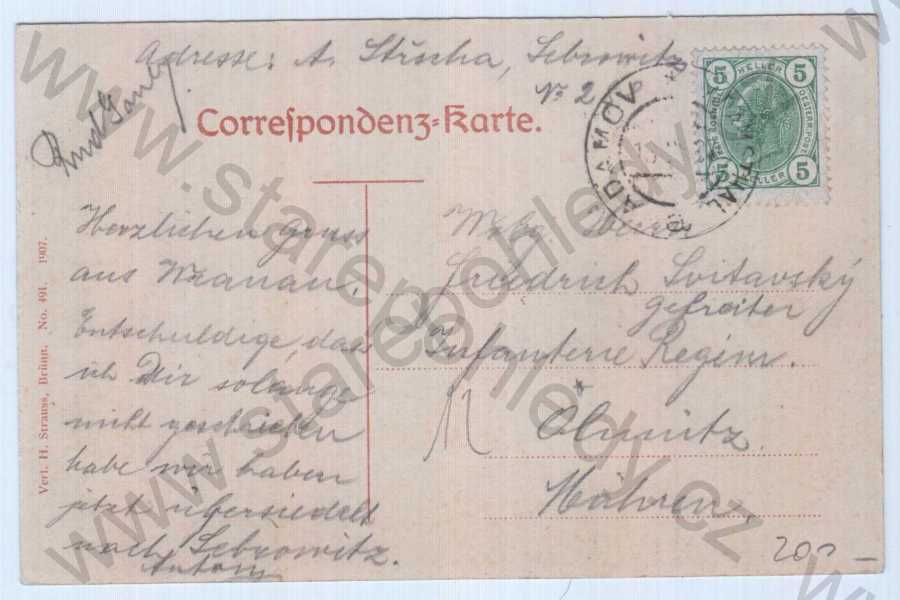 Adresse: A. Střecha, Sebrowitz
No 2
Correspondenz-Karte.
5 HELLER 5
5 HELLER 5
ADAMOV
ADAMSTHAL
Herzlichen Gruss
aus Wranau.
Entschuldige, dass
ich Dir solange
nicht geschrieben
habe wir haben
jetzt übersiedelt
nach Sebrowitz.
Anton
Friedrich Svitavský
Gefreiter
Infanterie Regim.
Olmütz.
Mähren.
Verl. H. Strauss, Brünn. No. 491. 1907.
200 –
www.starepohledy.cz